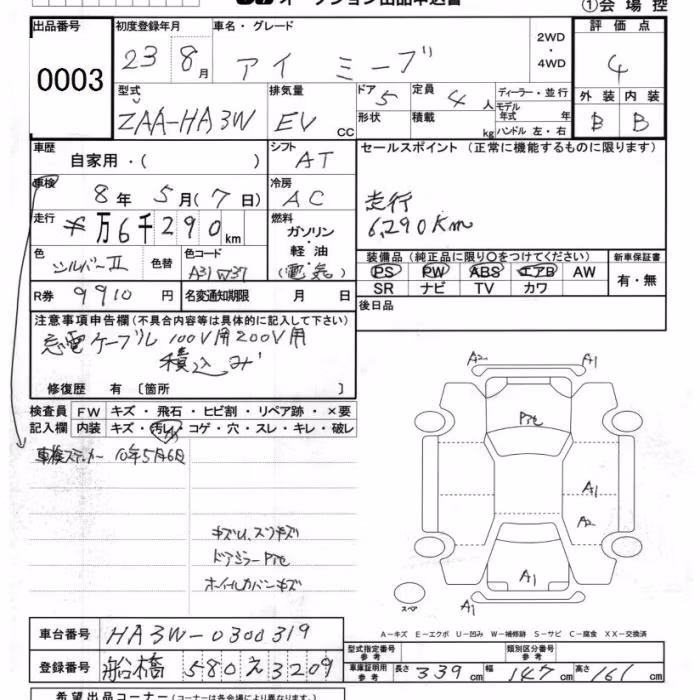 オークション出品申込書
①会場控
出品番号 初度登録年月 車名・グレード 2WD・4WD 評価点
0003 23 8月 アイ ミーブ 4
型式 排気量 ドア 5 定員 4人 ディーラー・並行 外装 内装
ZAA-HA3W EV CC 形状 積載 kg モデル年式 年 ハンドル 左・右 B B
車歴 シフト セールスポイント (正常に機能するものに限ります)
自家用・( ) AT
車検 8年 5月(7日) 冷房 AC 走行
走行 *万6千290km 燃料 6,290Km
ガソリン・軽油(電気)
色 シルバーII 色替 色コード A31 装備品 (純正品に限り○をつけてください) 新車保証書
PS PW ABS エアB AW 有・無
SR ナビ TV カワ
R券 9910円 名変通知期限 月 日 後日品
注意事項申告欄 (不具合内容等は具体的に記入して下さい)
電ケーブル 100V用200V用
積込み
修復歴 有 〔箇所 〕
検査員 FW キズ・飛石・ヒビ割・リペア跡・×要
記入欄 内装 キズ・汚れ・コゲ・穴・スレ・キレ・破レ
車検ステッカー 10年5月6日
A2 A1
A1
A2
キズU、スリキズ
ドアミラー
ホイルカバーキズ
A1
スペア A1
A-キズ E-エクボ U-凹み W-補修跡 S-サビ C-腐食 XX-交換済
車台番号 HA3W-0300319
型式指定番号 参考 類別区分番号 参考
登録番号 船橋 580 え 3209
車庫証明用 参考 長さ 339cm 幅 147cm 高さ 161cm
希望出品コーナー (コーナーは各会場により異なります。)